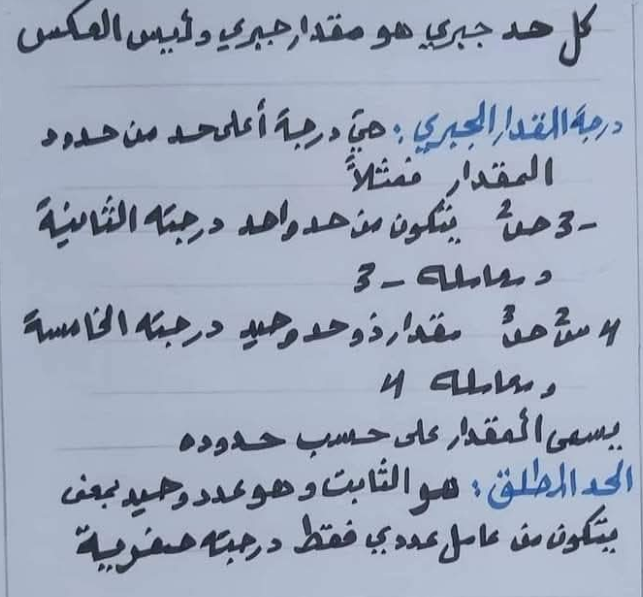 كل حد جبري هو مقدار جبري وليس العكس
درجة المقدار الجبري : هي درجة أعلى حد من حدود
المقدار فمثلاً
-3ص² يتكون من حد واحد درجته الثانية
ومعامله -3
4س²ص³ مقدار ذو حد وحيد درجته الخامسة
ومعامله 4
يسمى المقدار على حسب حدوده
الحد المطلق : هو الثابت وهو عدد وحيد بمعنى
يتكون من عامل عددي فقط درجته صفرية